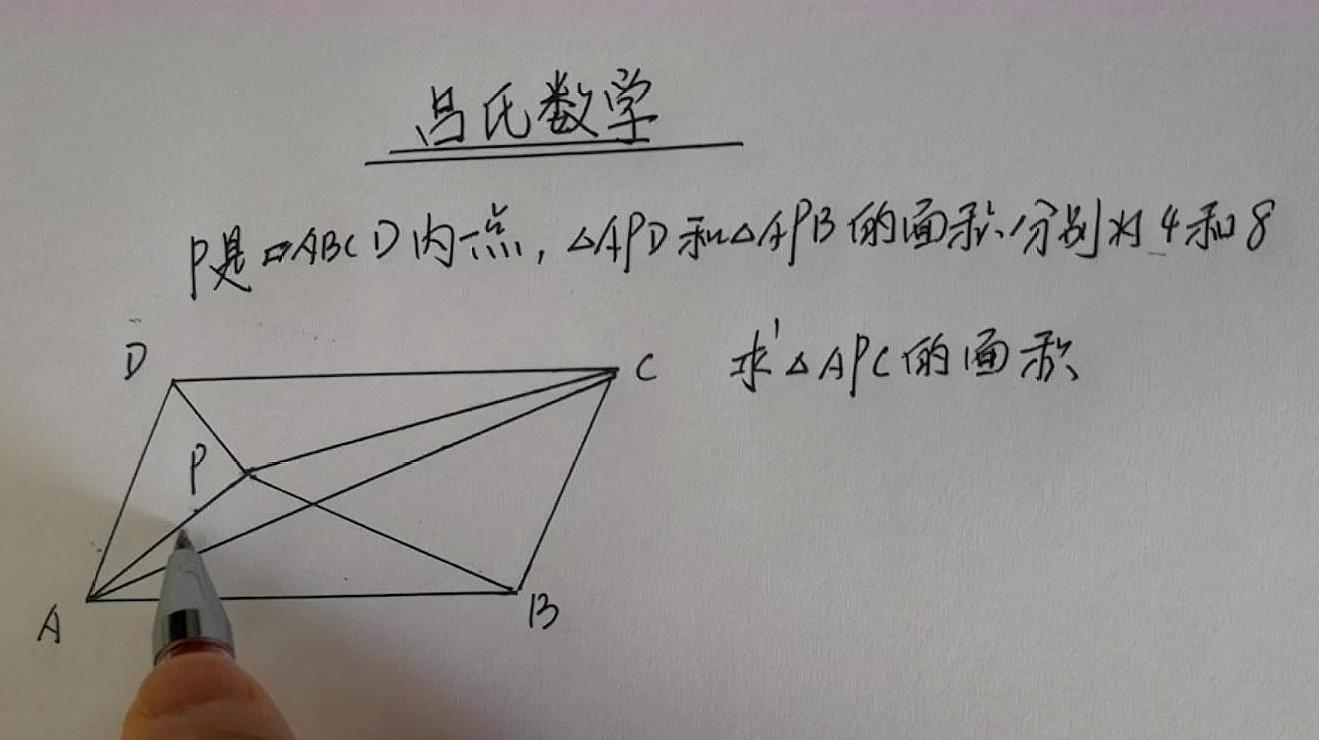 吕氏数学
P是▱ABCD内一点,△APD和△APB的面积分别为4和8
求△APC的面积
D
C
P
A
B